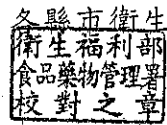 各縣市衛生
衛生福利部
食品藥物管理署
校對之章